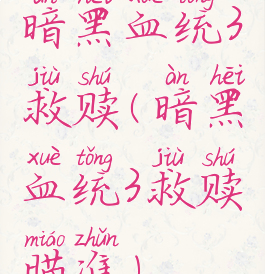 àn hēi xuè tǒng
暗黑血统3
jiù shú àn hēi
救赎(暗黑
xuè tǒng jiù shú
血统3救赎
miáo zhǔn
瞄准)